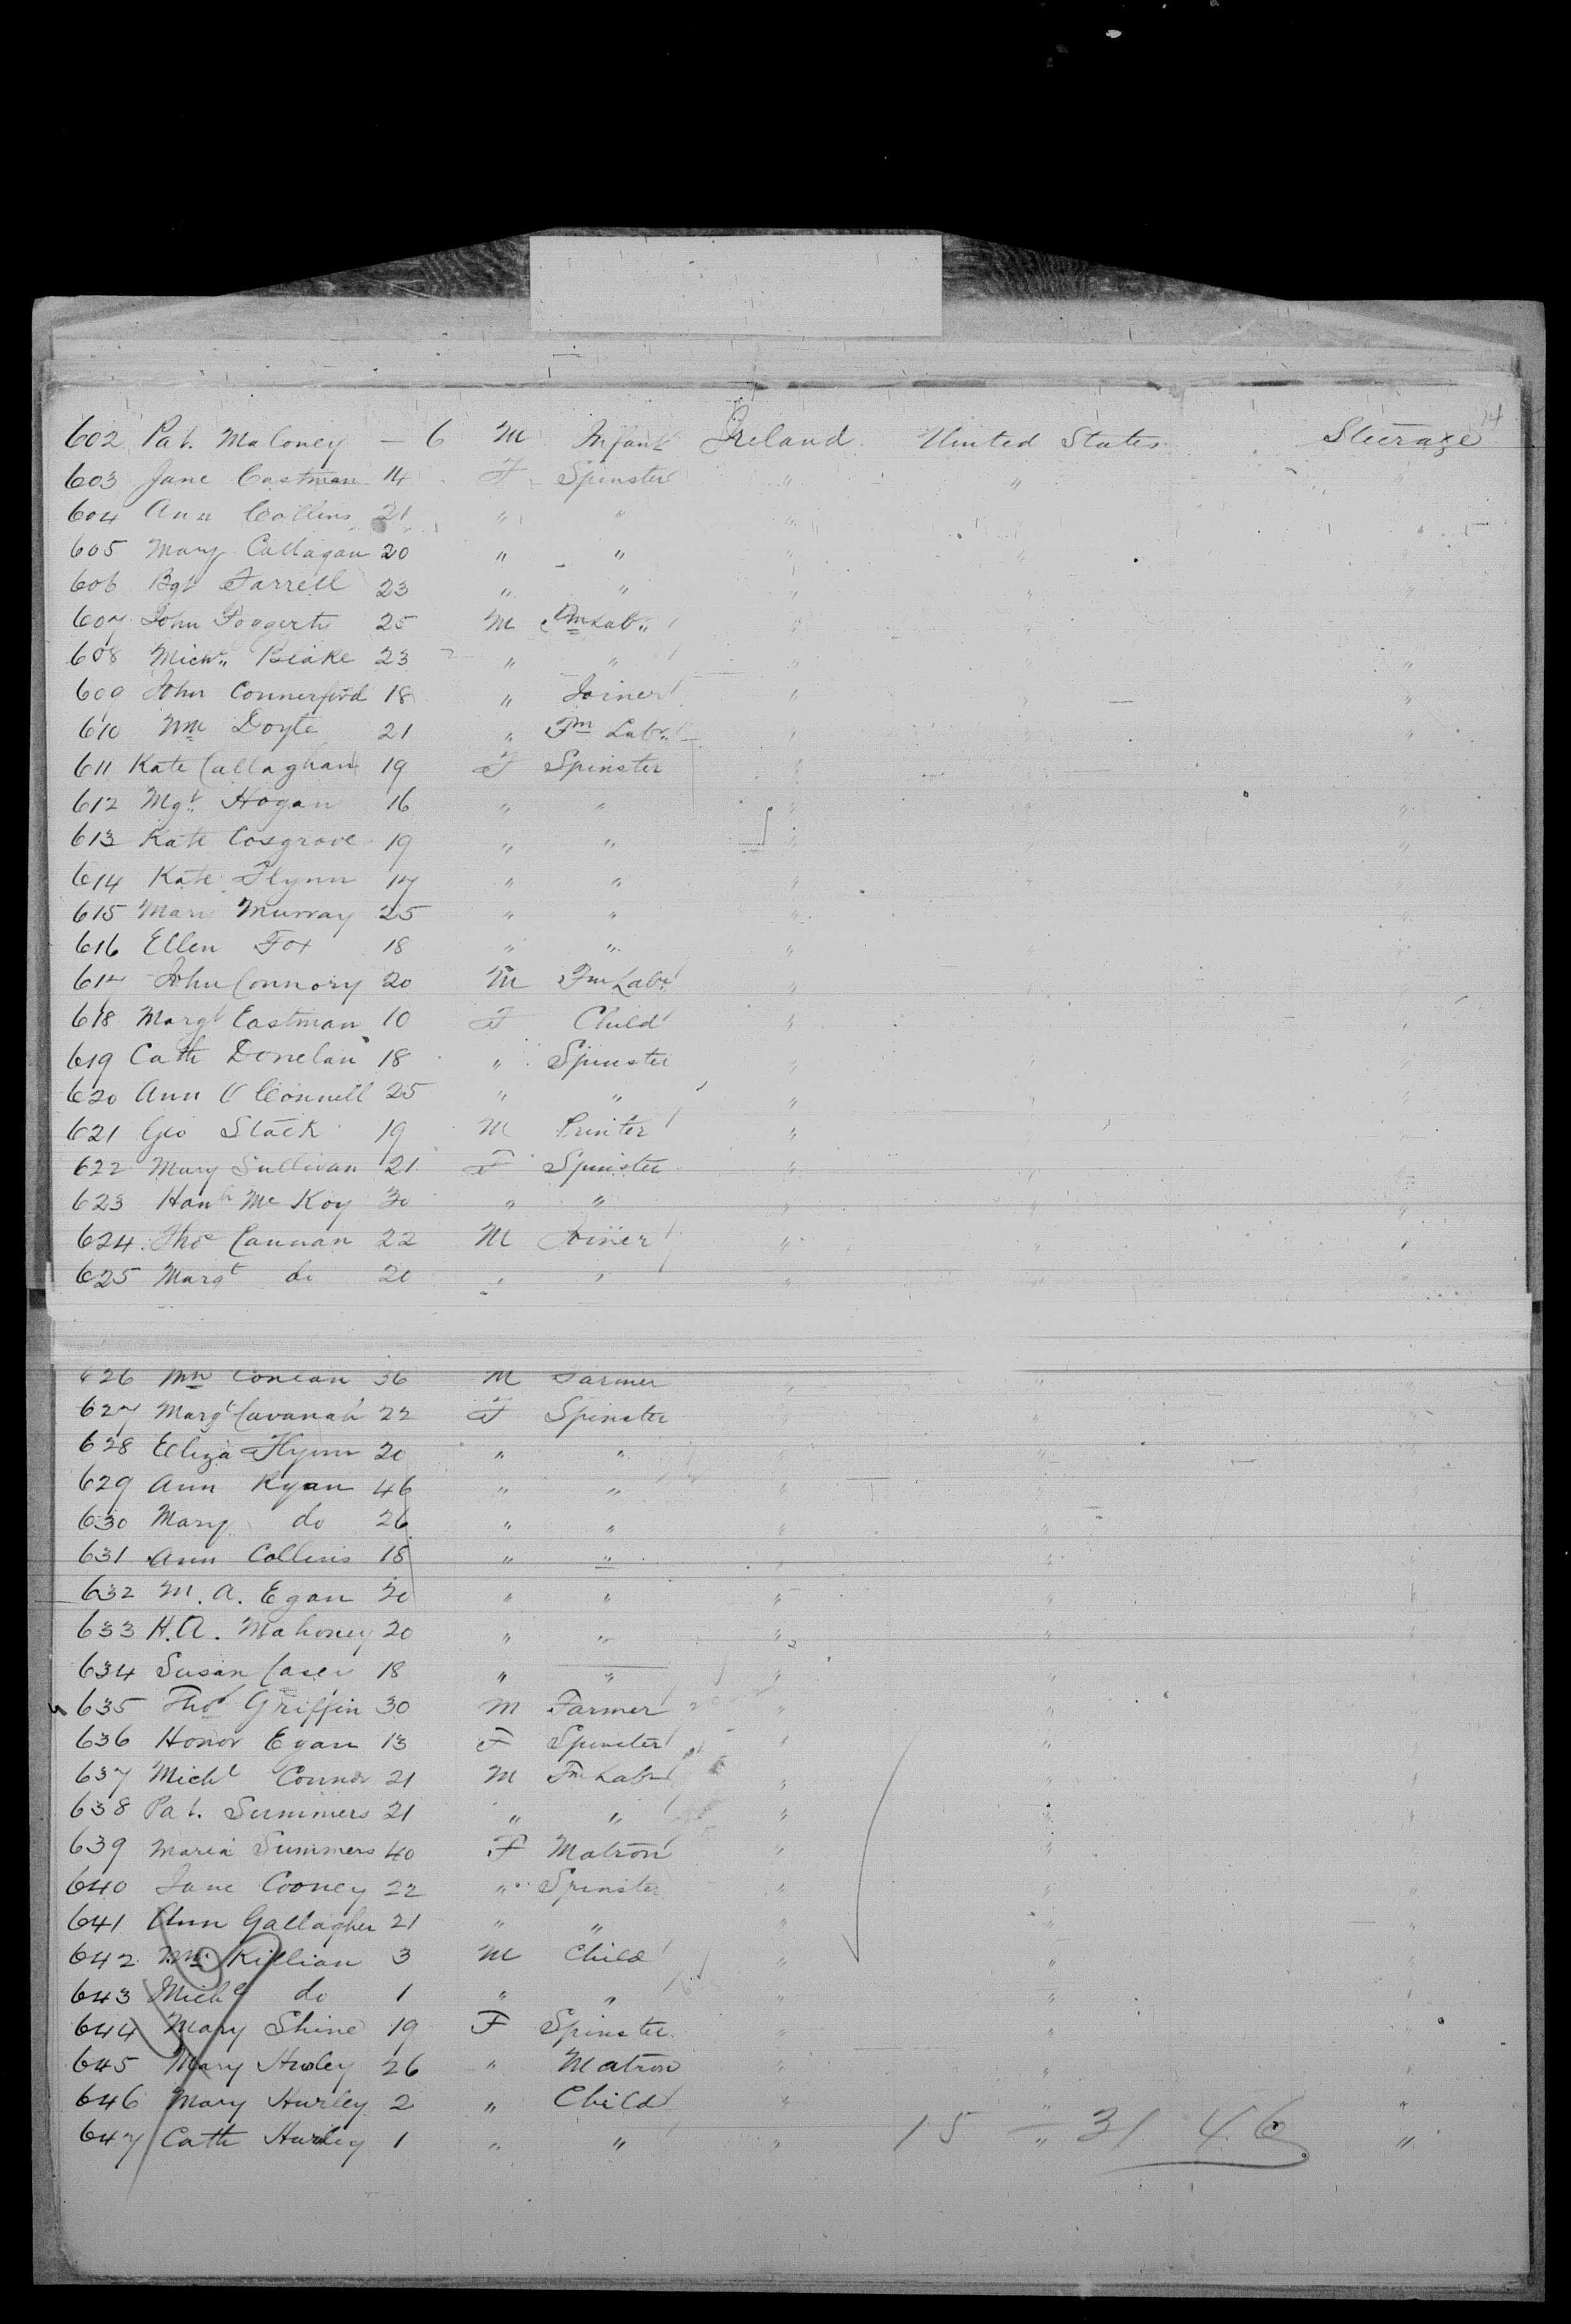 14
602 Pat. Maloney — 6 M Infant Ireland United States Steerage
603 Jane Eastman 14 F Spinster " " "
604 Ann Collins 21 " " "
605 Mary Callagan 20 " " " " "
606 Bgt Farrell 23 " " " " "
607 John Foggerty 25 M Fm Labr " " "
608 Michl Blake 23 " " " " "
609 John Connerford 18 " Joiner " " "
610 Wm Doyle 21 " Fm Labr " " "
611 Kate Callaghan 19 F Spinster " "
612 Mgt Hogan 16 " " " " "
613 Kate Cosgrove 19 " " " " "
614 Kate Flynn 17 " " " " "
615 Mary Murray 25 " " " "
616 Ellen Fox 18 " " " " "
617 John Connory 20 M Fm Labr " " "
618 Margt Eastman 10 F Child " " "
619 Cath Donelan 18 " Spinster " " "
620 Ann O'Connell 25 " " " " "
621 Geo Stack 19 M Printer " " "
622 Mary Sullivan 21 F Spinster " " "
623 Hanh McKoy 30 " " " " "
624 Thos Cannan 22 M Joiner " " "
625 Margt do 20 " " " " "
626 Wm Conlan 36 M Farmer " " "
627 Margt Cavanah 22 F Spinster " " "
628 Eliza Flynn 20 " " " " "
629 Ann Ryan 46 " " " " "
630 Mary do 26 " " " " "
631 Ann Collins 18 " " " " "
632 M. A. Egan 20 " " " " "
633 H. A. Mahoney 20 " " " " "
634 Susan Casey 18 " " " " "
635 Thos Griffin 30 M Farmer " " "
636 Honor Egan 13 F Spinster " " "
637 Michl Connor 21 M Fm Labr " " "
638 Pat. Summers 21 " " " " "
639 Maria Summers 40 F Matron " " "
640 Jane Cooney 22 " Spinster " " "
641 Ann Gallagher 21 " " " " "
642 Wm Killian 3 M Child " " "
643 Michl do 1 " " " " "
644 Mary Shine 19 F Spinster " " "
645 Mary Hurley 26 " Matron " " "
646 Mary Hurley 2 " Child " " "
647 Cath Hurley 1 " " " " "
15 — 31 46